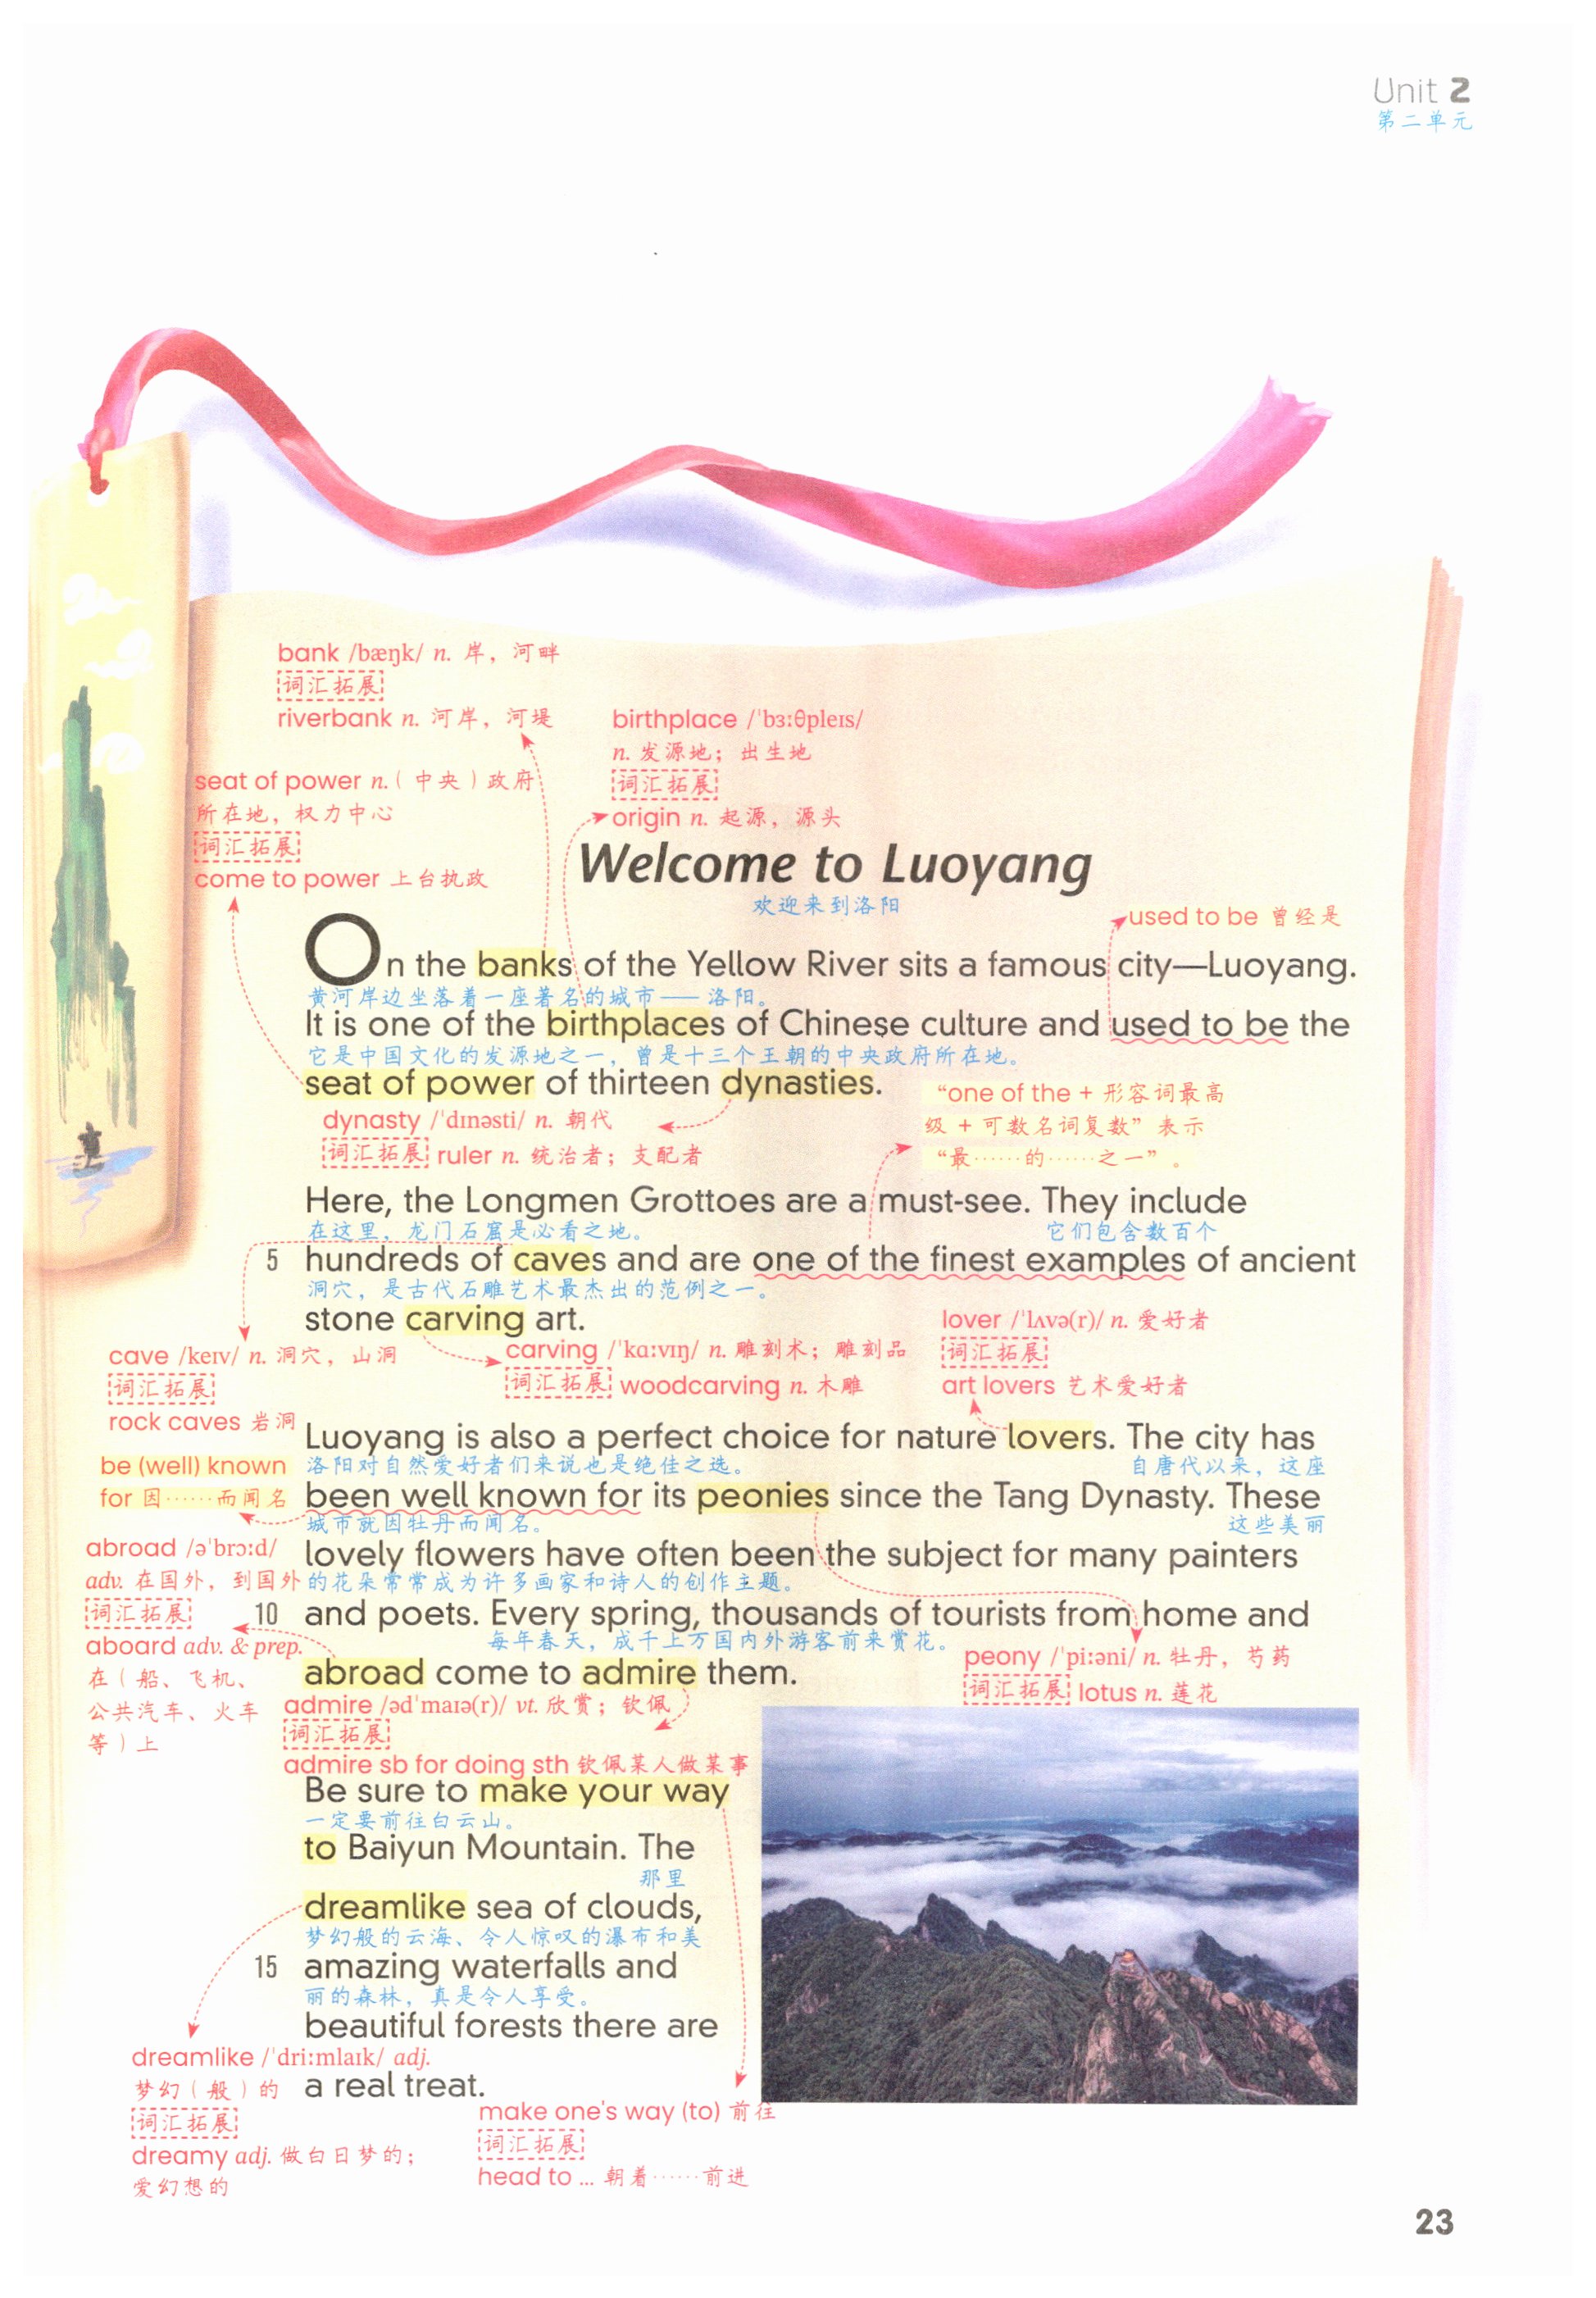 Unit 2
第二单元
bank /bæŋk/ n. 岸，河畔
词汇拓展
riverbank n. 河岸，河堤
birthplace /ˈbɜːθpleɪs/
n. 发源地；出生地
词汇拓展
origin n. 起源，源头
seat of power n.（中央）政府
所在地，权力中心
词汇拓展
come to power 上台执政
Welcome to Luoyang
欢迎来到洛阳
used to be 曾经是
On the banks of the Yellow River sits a famous city—Luoyang.
黄河岸边坐落着一座著名的城市——洛阳。
It is one of the birthplaces of Chinese culture and used to be the
它是中国文化的发源地之一，曾是十三个王朝的中央政府所在地。
seat of power of thirteen dynasties.
dynasty /ˈdɪnəsti/ n. 朝代
词汇拓展 ruler n. 统治者；支配者
“one of the + 形容词最高
级 + 可数名词复数” 表示
“最……的……之一”。
Here, the Longmen Grottoes are a must-see. They include
在这里，龙门石窟是必看之地。 它们包含数百个
5 hundreds of caves and are one of the finest examples of ancient
洞穴，是古代石雕艺术最杰出的范例之一。
stone carving art.
cave /keɪv/ n. 洞穴，山洞
词汇拓展
rock caves 岩洞
carving /ˈkɑːvɪŋ/ n. 雕刻术；雕刻品
词汇拓展 woodcarving n. 木雕
lover /ˈlʌvə(r)/ n. 爱好者
词汇拓展
art lovers 艺术爱好者
Luoyang is also a perfect choice for nature lovers. The city has
洛阳对自然爱好者们来说也是绝佳之选。 自唐代以来，这座
be (well) known
for 因……而闻名
been well known for its peonies since the Tang Dynasty. These
城市就因牡丹而闻名。 这些美丽
lovely flowers have often been the subject for many painters
的花朵常常成为许多画家和诗人的创作主题。
abroad /əˈbrɔːd/
adv. 在国外，到国外
词汇拓展
aboard adv. & prep.
在（船、飞机、
公共汽车、火车
等）上
10 and poets. Every spring, thousands of tourists from home and
每年春天，成千上万国内外游客前来赏花。
abroad come to admire them.
peony /ˈpiːəni/ n. 牡丹，芍药
词汇拓展 lotus n. 莲花
admire /ədˈmaɪə(r)/ vt. 欣赏；钦佩
词汇拓展
admire sb for doing sth 钦佩某人做某事
Be sure to make your way
一定要前往白云山。
to Baiyun Mountain. The
那里
dreamlike sea of clouds,
梦幻般的云海、令人惊叹的瀑布和美
15 amazing waterfalls and
丽的森林，真是令人享受。
beautiful forests there are
a real treat.
dreamlike /ˈdriːmlaɪk/ adj.
梦幻（般）的
词汇拓展
dreamy adj. 做白日梦的；
爱幻想的
make one's way (to) 前往
词汇拓展
head to ... 朝着……前进
23